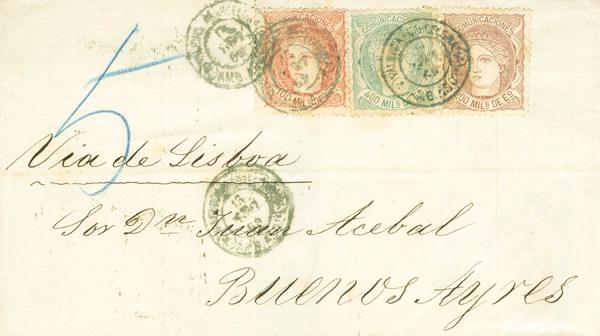 COMUNICACIONES COMUNICACIONES COMUNICACIONES
100 MILS DE Eº 400 MILS DE Eº 200 MILS DE Eº
5
Via de Lisboa
Sor Dn Juan Acebal
Buenos Ayres